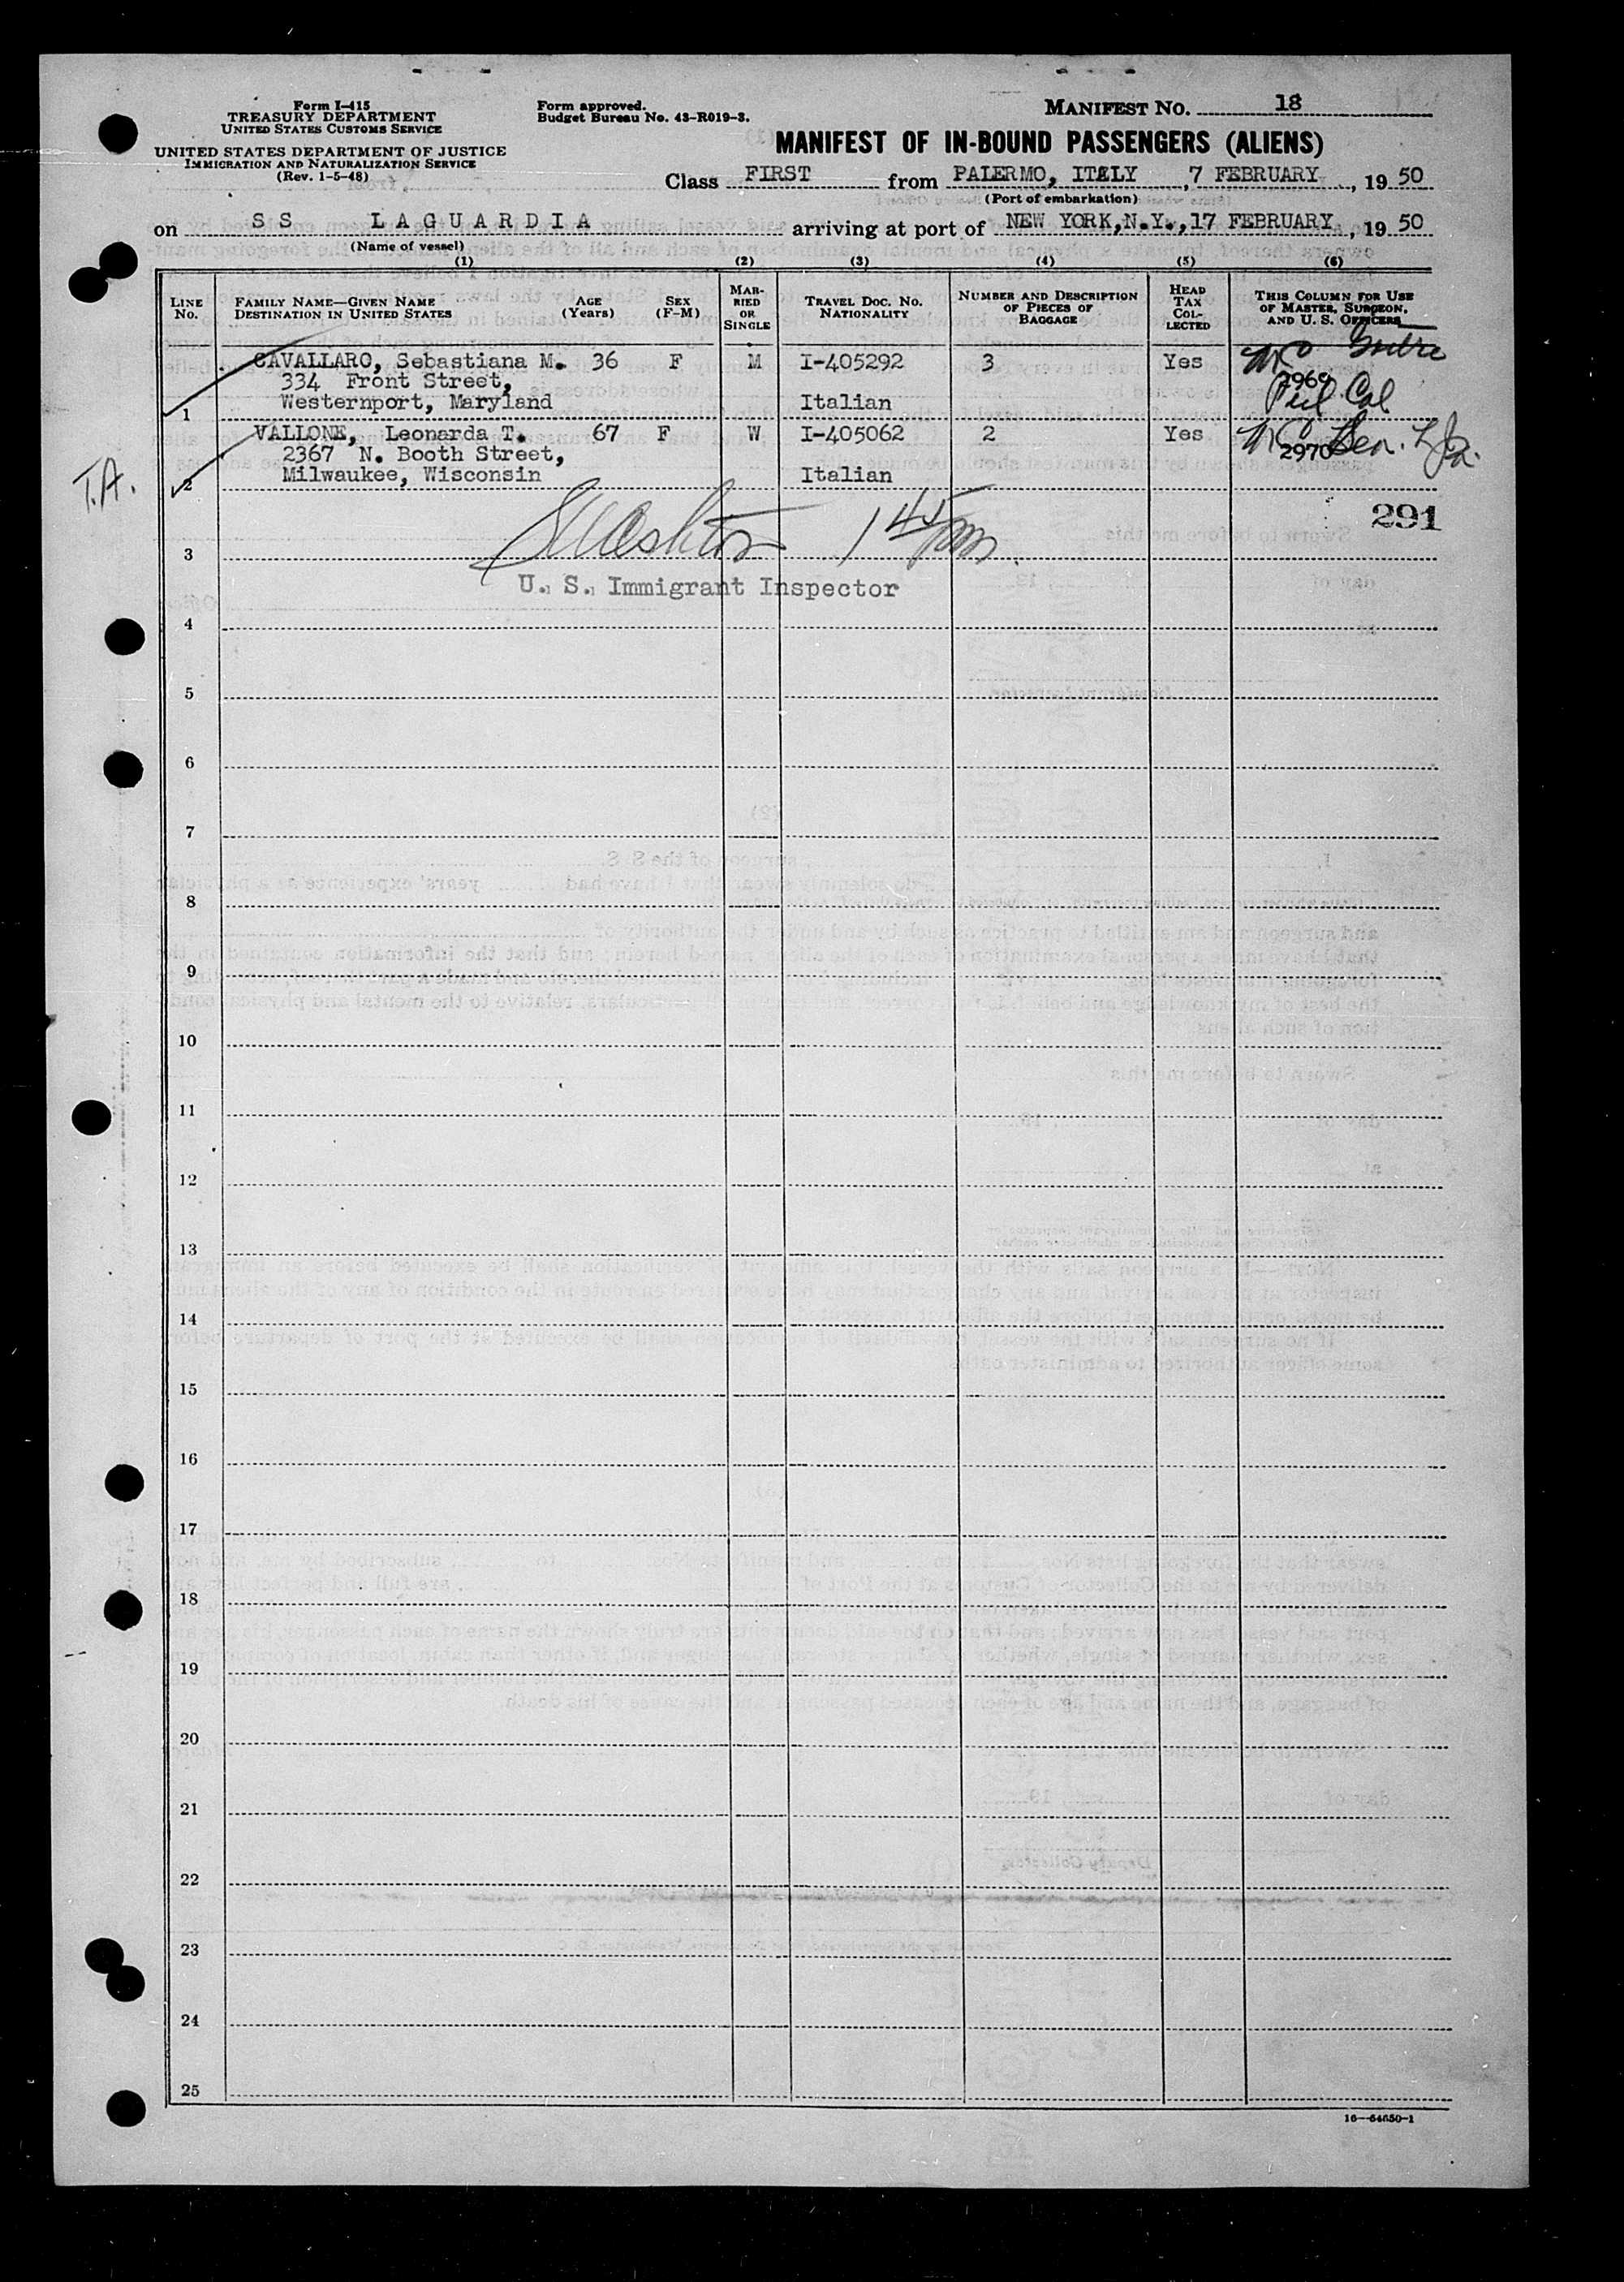 Form I-415
TREASURY DEPARTMENT
UNITED STATES CUSTOMS SERVICE
UNITED STATES DEPARTMENT OF JUSTICE
IMMIGRATION AND NATURALIZATION SERVICE
(Rev. 1-5-48)
Form approved.
Budget Bureau No. 43-R019-3.
MANIFEST No. 18
MANIFEST OF IN-BOUND PASSENGERS (ALIENS)
Class FIRST from PALERMO, ITALY, 7 FEBRUARY, 1950
(Port of embarkation)
on SS LAGUARDIA arriving at port of NEW YORK, N.Y., 17 FEBRUARY, 1950
(Name of vessel)
(1) (2) (3) (4) (5) (6)
LINE No. FAMILY NAME—GIVEN NAME DESTINATION IN UNITED STATES AGE (Years) SEX (F-M) MARRIED OR SINGLE TRAVEL DOC. NO. NATIONALITY NUMBER AND DESCRIPTION OF PIECES OF BAGGAGE HEAD TAX COLLECTED THIS COLUMN FOR USE OF MASTER, SURGEON, AND U. S. OFFICERS
CAVALLARO, Sebastiana M. 36 F M I-405292 3 Yes
334 Front Street, 2969
1 Westernport, Maryland Italian
VALLONE, Leonarda T. 67 F W I-405062 2 Yes
2367 N. Booth Street, 2970
T.A. 2 Milwaukee, Wisconsin Italian
291
3 1 45 pm
U. S. Immigrant Inspector
4
5
6
7
8
9
10
11
12
13
14
15
16
17
18
19
20
21
22
23
24
25
16—54650-1